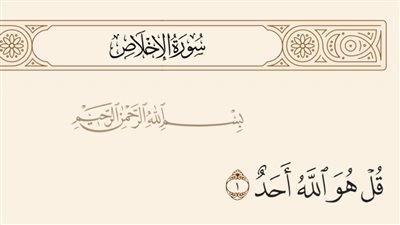 سُورَةُ الإِخْلَاصِ
بِسْمِ ٱللَّهِ ٱلرَّحْمَٰنِ ٱلرَّحِيمِ
قُلْ هُوَ ٱللَّهُ أَحَدٌ ١